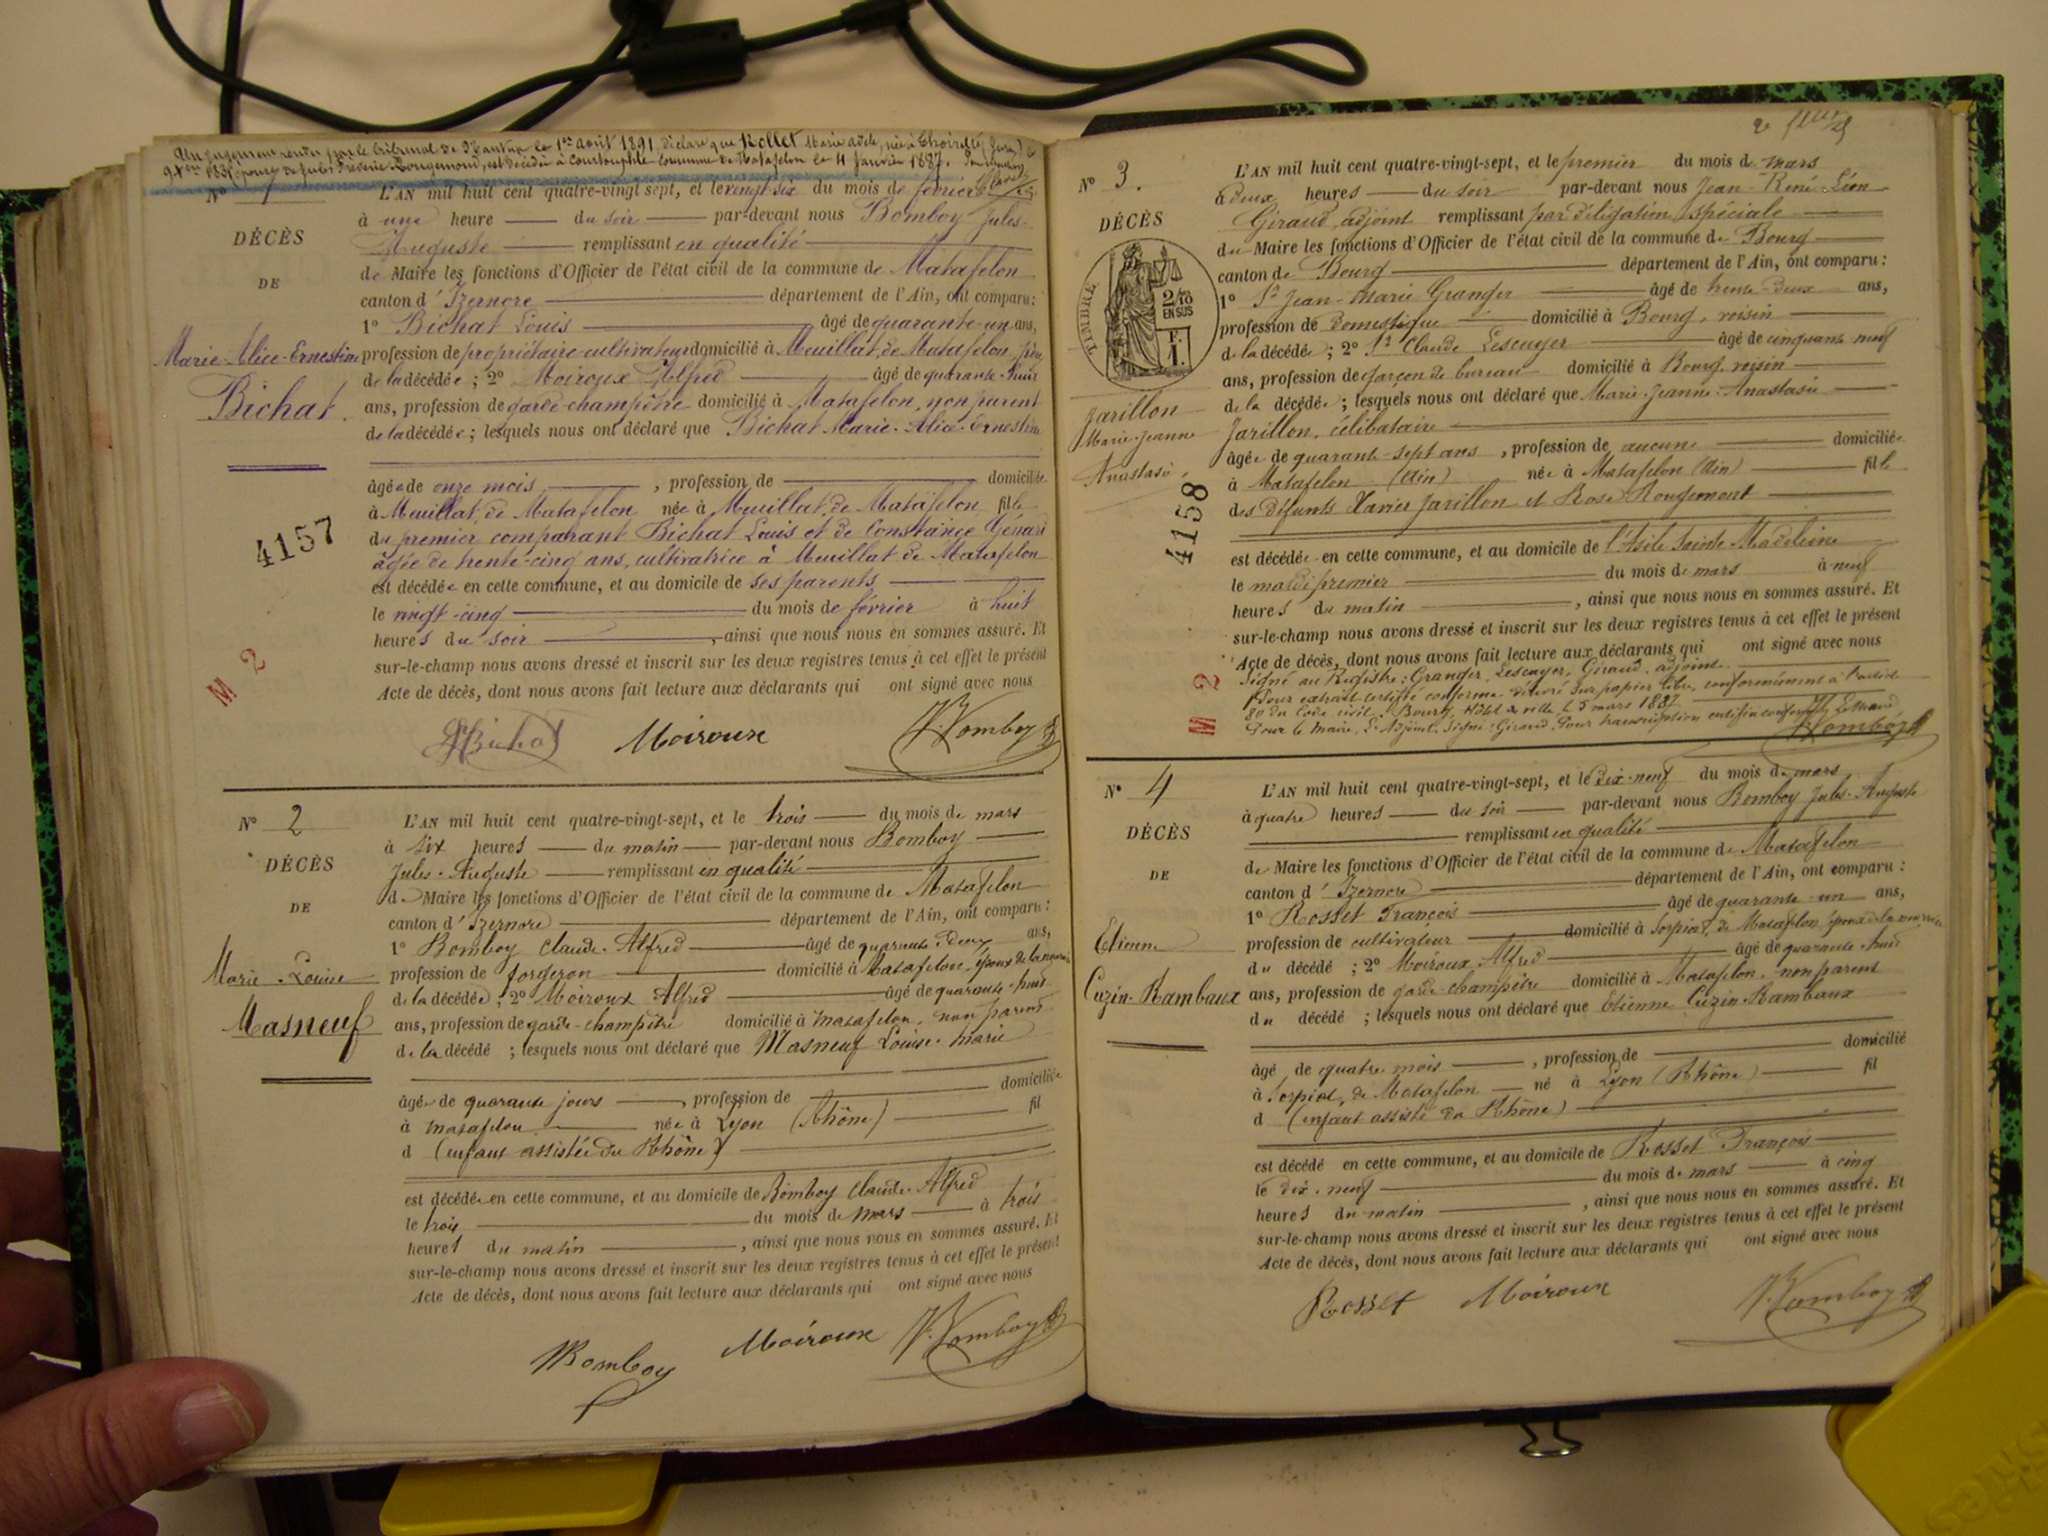 Un jugement rendu par le tribunal de Nantua le 1er août 1891, déclare que Rollet Marie adèle, née à Thoirette (Jura) le
9 Xbre 1831, épouse de Jules Rougemont, est décédée à Courtouphle commune de Matafelon le 11 Janvier 1887.
N° 1
DÉCÈS
DE
Marie-Alice-Ernestine
Bichat.
4157
M 2
L'AN mil huit cent quatre-vingt-sept, et le vingt-six du mois de février
à une heure du soir par-devant nous Bomboy Jules-
Auguste remplissant en qualité
de Maire les fonctions d'Officier de l'état civil de la commune de Matafelon
canton d'Izernore département de l'Ain, ont comparu:
1° Bichat Louis âgé de quarante-un ans,
profession de propriétaire-cultivateur domicilié à Meuillat, de Matafelon, père
de la décédée; 2° Moiroux Alfred âgé de quarante-huit
ans, profession de garde-champêtre domicilié à Matafelon, non parent
de la décédée; lesquels nous ont déclaré que Bichat Marie-Alice-Ernestine
âgée de onze mois, profession de domiciliée
à Meuillat, de Matafelon née à Meuillat, de Matafelon fille
du premier comparant Bichat Louis et de Constance Génari
âgée de trente-cinq ans, cultivatrice à Meuillat de Matafelon
est décédée en cette commune, et au domicile de ses parents
le vingt-cinq du mois de février à huit
heures du soir, ainsi que nous nous en sommes assuré. Et
sur-le-champ nous avons dressé et inscrit sur les deux registres tenus à cet effet le présent
Acte de décès, dont nous avons fait lecture aux déclarants qui ont signé avec nous
Bichat Moiroux Bomboy
N° 2
DÉCÈS
DE
Marie-Louise
Masneuf
L'AN mil huit cent quatre-vingt-sept, et le trois du mois de mars
à six heures du matin par-devant nous Bomboy
Jules-Auguste remplissant en qualité
de Maire les fonctions d'Officier de l'état civil de la commune de Matafelon
canton d'Izernore département de l'Ain, ont comparu:
1° Bomboy Claude-Alfred âgé de quarante-deux ans,
profession de forgeron domicilié à Matafelon, époux de la nourrice
de la décédée; 2° Moiroux Alfred âgé de quarante-huit
ans, profession de garde-champêtre domicilié à Matafelon, non parent
de la décédé; lesquels nous ont déclaré que Masneuf Louise-Marie
âgée de quarante jours, profession de domiciliée
à Matafelon née à Lyon (Rhône) fil
d (enfant assistée du Rhône)
est décédée en cette commune, et au domicile de Bomboy Claude-Alfred
le trois du mois de mars à trois
heures du matin, ainsi que nous nous en sommes assuré. Et
sur-le-champ nous avons dressé et inscrit sur les deux registres tenus à cet effet le présent
Acte de décès, dont nous avons fait lecture aux déclarants qui ont signé avec nous
Bomboy Moiroux Bomboy
2
N° 3.
DÉCÈS
TIMBRE
2/10
EN SUS
F.
1.
Jarillon
Marie-Jeanne
Anastasie
4158
M 2
L'AN mil huit cent quatre-vingt-sept, et le premier du mois de mars
à deux heures du soir par-devant nous Jean-René-Léon
Giraud, adjoint remplissant par délégation spéciale
du Maire les fonctions d'Officier de l'état civil de la commune de Bourg
canton de Bourg département de l'Ain, ont comparu:
1° Sr Jean-Marie Granger âgé de trente-deux ans,
profession de domestique domicilié à Bourg, voisin
de la décédée; 2° Sr Claude Lescuyer âgé de cinquante neuf
ans, profession de garçon de bureau domicilié à Bourg, voisin
de la décédée; lesquels nous ont déclaré que Marie-Jeanne-Anastasie
Jarillon, célibataire
âgée de quarante-sept ans, profession de aucune domiciliée
à Matafelon (Ain) née à Matafelon (Ain) fille
des défunts Xavier Jarillon et Rose Rougemont
est décédée en cette commune, et au domicile de l'Asile Sainte Madeleine
le mardi premier du mois de mars à neuf
heures du matin, ainsi que nous nous en sommes assuré. Et
sur-le-champ nous avons dressé et inscrit sur les deux registres tenus à cet effet le présent
Acte de décès, dont nous avons fait lecture aux déclarants qui ont signé avec nous
Signé au Registre: Granger, Lescuyer, Giraud, adjoint.
Pour extrait certifié conforme délivré sur papier libre, conformément à l'article
80 du Code civil. Bourg, Hôtel de ville le 5 mars 1887
Pour le Maire, L'Adjoint, Signé: Giraud. Pour transcription certifiée conforme, Le Maire
Bomboy
N° 4
DÉCÈS
DE
Etienne
Cuzin-Rambaux
L'AN mil huit cent quatre-vingt-sept, et le dix-neuf du mois de mars
à quatre heures du soir par-devant nous Bomboy Jules-Auguste
remplissant en qualité
de Maire les fonctions d'Officier de l'état civil de la commune de Matafelon
canton d'Izernore département de l'Ain, ont comparu:
1° Rosset François âgé de quarante-un ans,
profession de cultivateur domicilié à Sorpiat, de Matafelon, époux de la nourrice
du décédé; 2° Moiroux Alfred âgé de quarante-huit
ans, profession de garde-champêtre domicilié à Matafelon, non parent
du décédé; lesquels nous ont déclaré que Etienne Cuzin-Rambaux
âgé de quatre mois, profession de domicilié
à Sorpiat, de Matafelon né à Lyon (Rhône) fil
d (enfant assisté du Rhône)
est décédé en cette commune, et au domicile de Rosset François
le dix-neuf du mois de mars à cinq
heures du matin, ainsi que nous nous en sommes assuré. Et
sur-le-champ nous avons dressé et inscrit sur les deux registres tenus à cet effet le présent
Acte de décès, dont nous avons fait lecture aux déclarants qui ont signé avec nous
Rosset Moiroux Bomboy